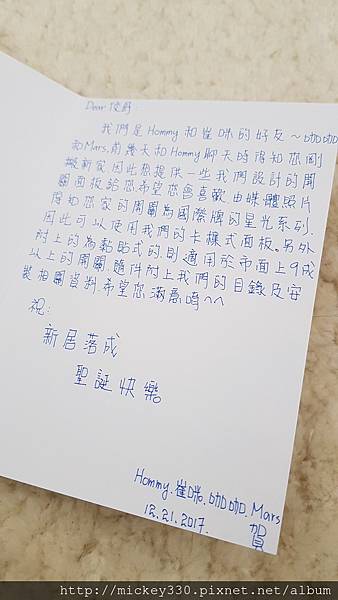 Dear 俊爵
我們是Hommy和崔咪的好友~咖咖
和Mars,前幾天和Hommy聊天時得知您剛
搬新家,因此想提供一些我們設計的開
關面板給您希望您會喜歡.由媒體照片
得知您家的開關為國際牌的星光系列.
因此可以使用我們的卡樣式面板.另外
附上的為黏貼式的,則適用於市面上9成
以上的開關.隨件附上我們的目錄及安
裝相關資料,希望您滿意唷^^
祝:
新居落成
聖誕快樂
Hommy.崔咪.咖咖.Mars
12.21.2017. 賀
http://mickey330.pixnet.net/album